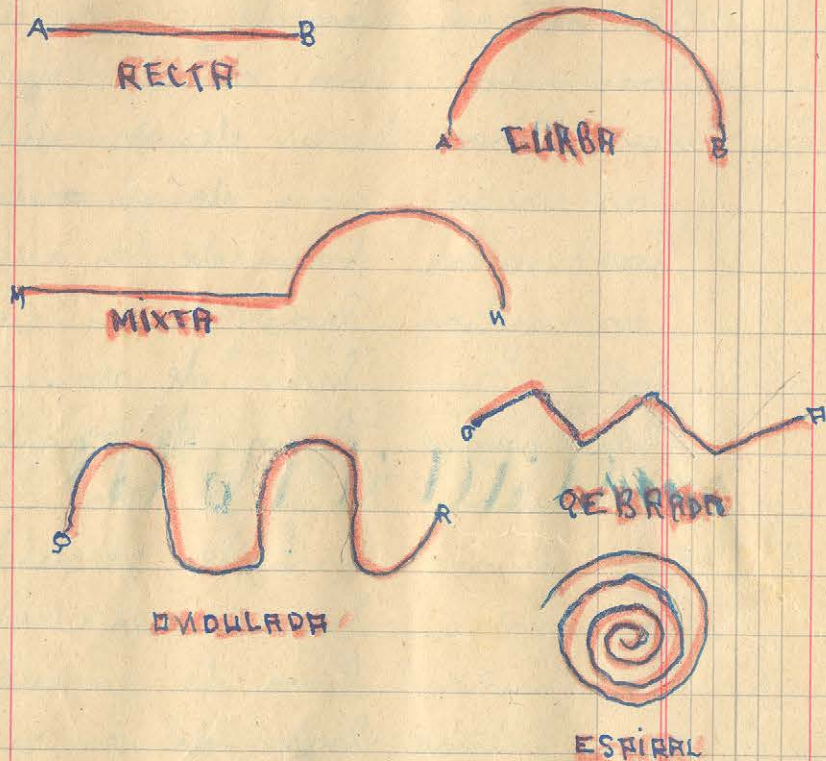 A B
RECTA
A B
CURBA
M N
MIXTA
O A
QEBRADA
Q R
ONDULADA
ESPIRAL